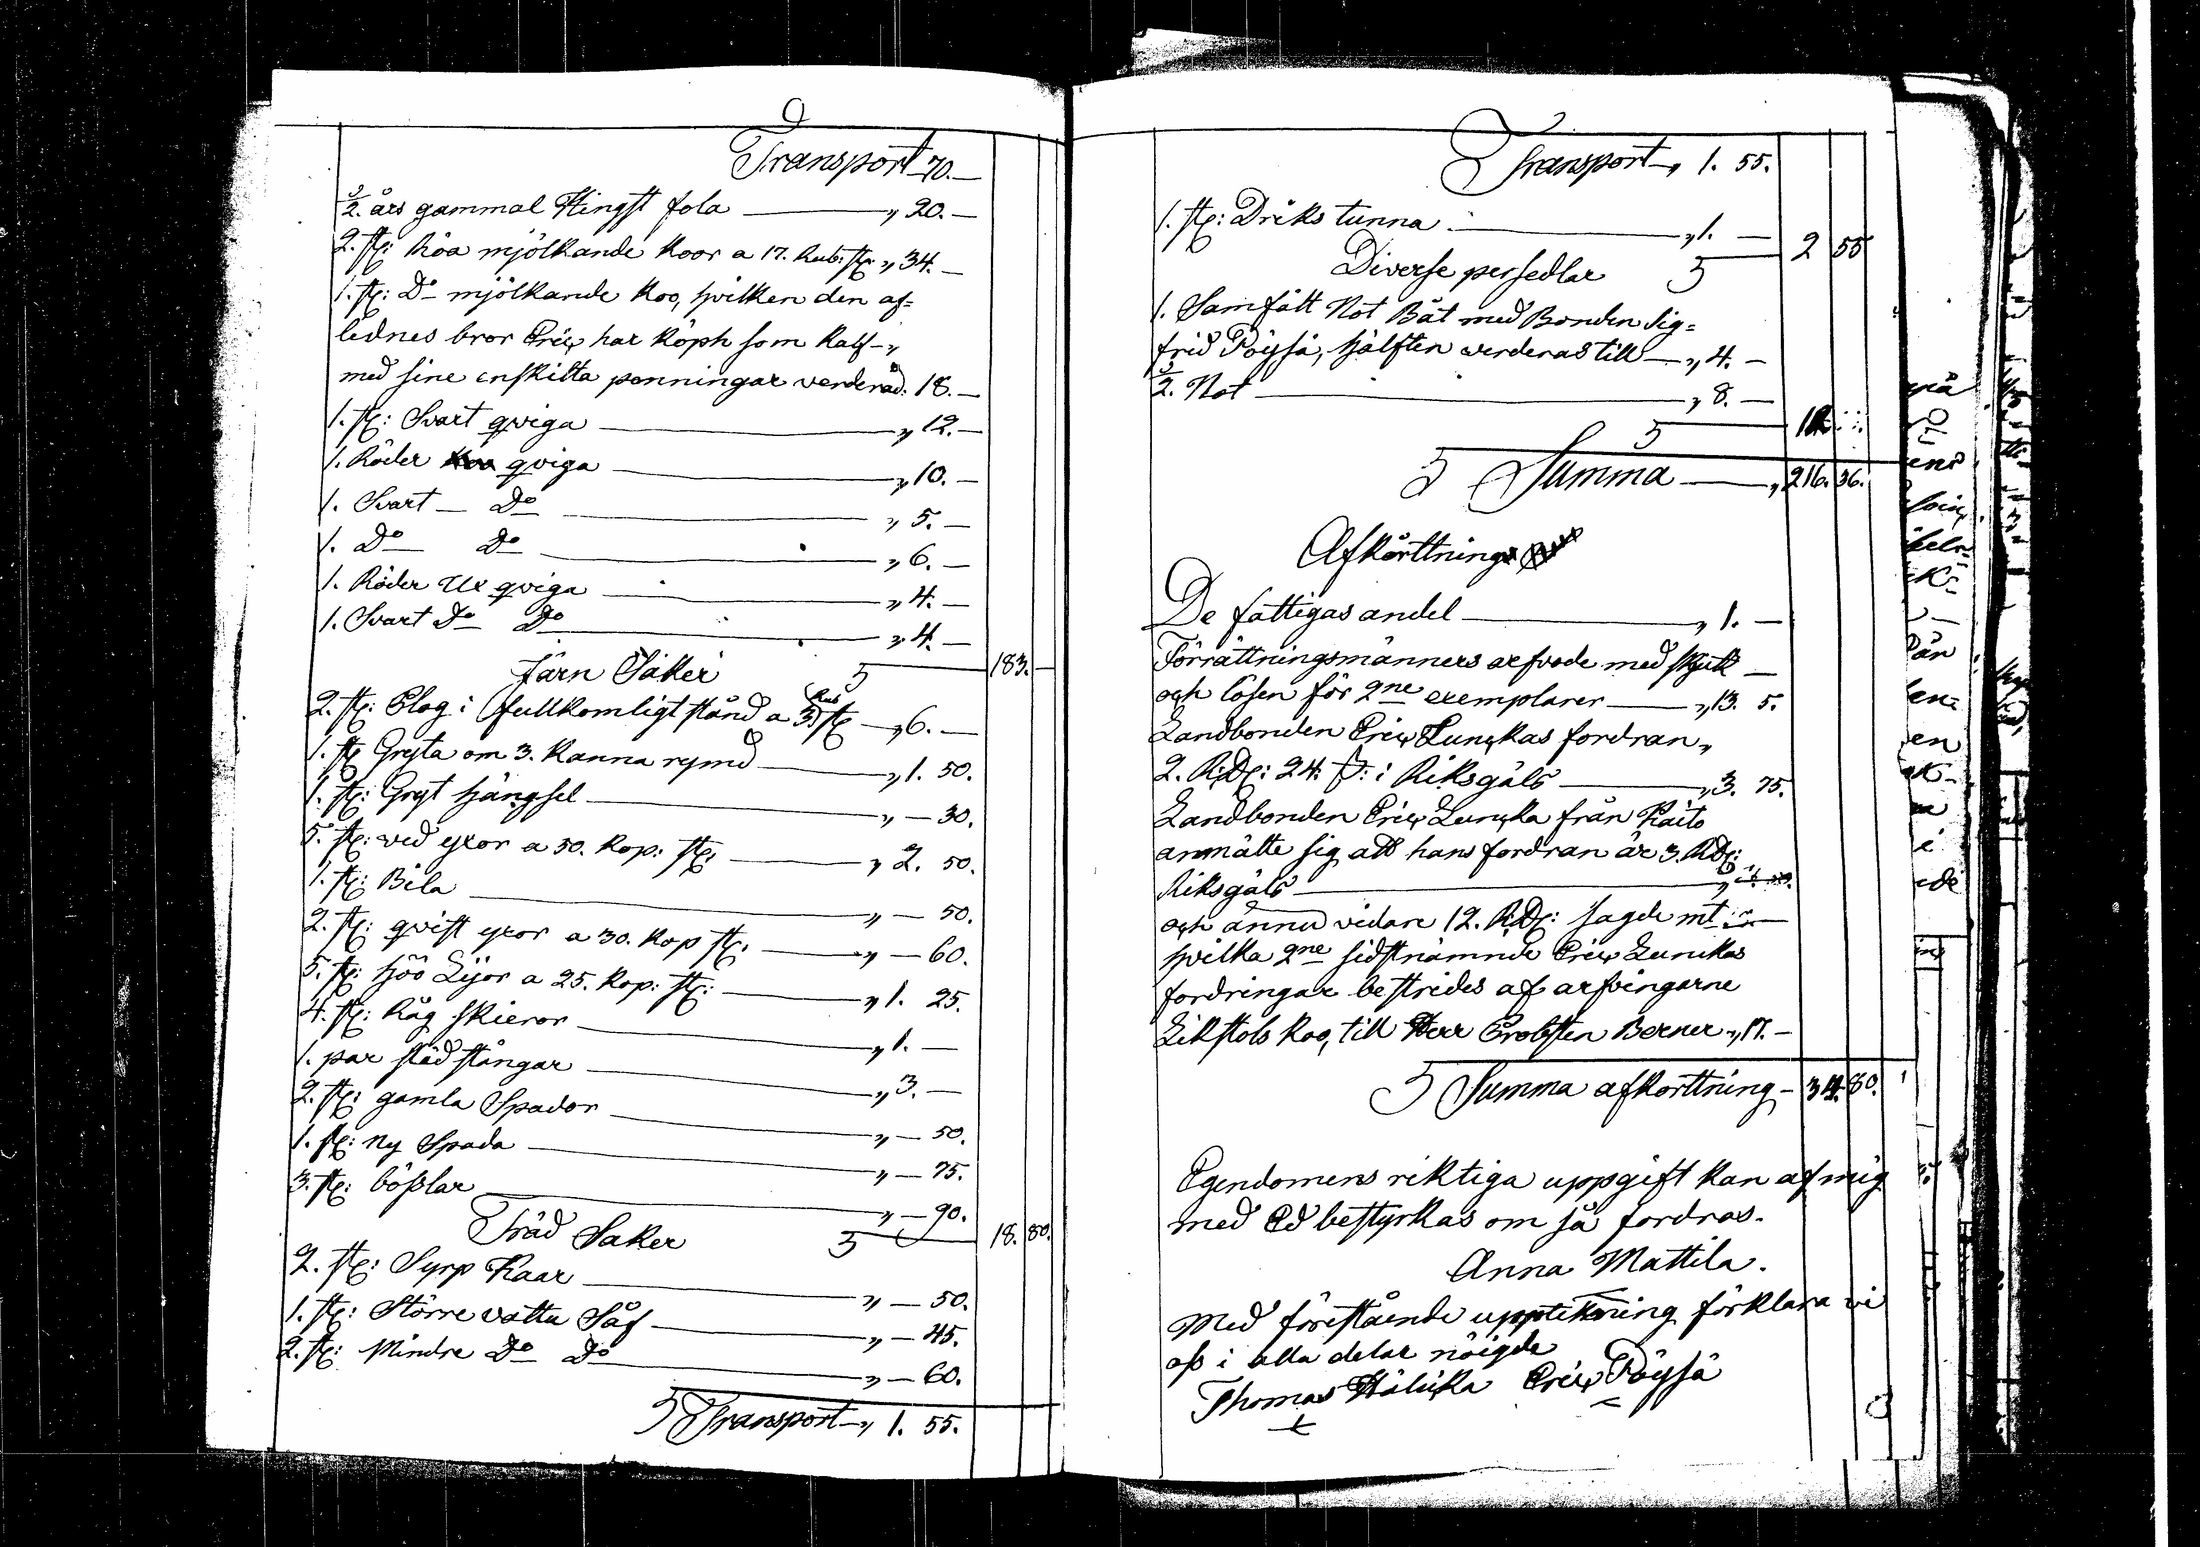 Transport 70.—
½ års gammal Hingst fola — „ 20. —
2. st: Röa mjölkande Koor a 17. Rub: st: „ 34. —
1. st: Do mjölkande Koo, hvilken den af-
lednes bror Eric har köph som Kalf - „
med sine enskilta penningar verderad. 18. —
1. st: Svart qviga — „ 12. —
1. Röder qviga — „ 10. —
1. Svart — Do — „ 5. —
1. Do Do — „ 6. —
1. Röder Ux qviga — „ 4. —
1. Svart Do Do — „ 4. —
Järn Saker 183. —
2. st: Plog i fullkomligt stånd a 3. Rub st — „ 6. —
1. st Gryta om 3. Kanna rymd — „ 1. 50.
1. st: Gryt hängsel — „ — 30.
5. st: ved yxor a 50. Kop: st: — „ 2. 50.
1. st: Bila — „ — 50.
2. st: qvist yxor a 30. Kop st: — „ — 60.
5. st: Höö Lijor a 25. Kop: st: — „ 1. 25.
4. st: Råg skieror — „ 1. —
1. par städ stångar — „ 3. —
2. st: gamla Spador — „ — 50.
1. st: ny Spada — „ — 75.
3. st: bößlar — „ — 90.
Träd Saker 18. 80.
2. st: Syrp Kaar — „ — 50.
1. st: Större vattu Såf — „ — 45.
2. st: Mindre Do Do — „ — 60.
Transport — „ 1. 55.
Transport — „ 1. 55.
1. st: Driks tunna — „ 1. —
Diverse persedlar 2 55
1. Samfält Not Båt med Bonden Sig-
frid Pöysä, hälften verderas till — „ 4. —
½. Not — „ 8. —
12.
Summa — „ 216. 36.
Afkorttning
De fattigas andel — „ 1. —
Förrättningsmänners arfvode med skjutt
och lösen för 2ne exemplarer — „ 13. 5.
Landbonden Eric Lunkas fordran „
2. RD: 24. s: i Riksgäls — „ 3. 75.
Landbonden Eric Lunka från Raito
anmälte sig att hans fordran är 3. RD:
Riksgäls — „
och ännu vidare 12. RD: sagde mt
hvilka 2ne sidstnämnde Eric Lunkas
fordringar bestrides af arfvingarne
Likstols Koo, till Herr Probsten Berner „ 17. —
Summa afkorttning — 34. 80.
Egendomens riktiga uppgift kan af mig
med Ed bestyrkas om så fordras.
Anna Mattila.
Med förestående uppteknning förklara vi
oß i alla delar nöigde
Thomas Eric Pöysä